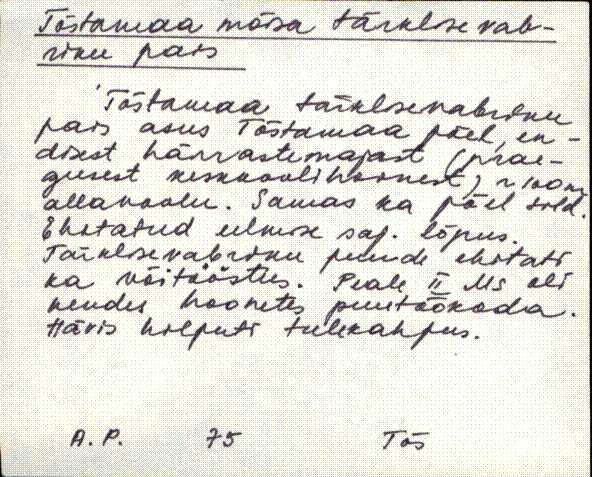 Tõstamaa mõisa tärklisevab-
riku pais
Tõstamaa tärklisevabriku
pais asus Tõstamaa jõel, en-
disest härrastemajast (prae-
gusest keskkoolihoonest) ~ 100 m
allavoolu. Samas ka jõel sild.
Ehitatud eelmise saj. lõpus.
Tärklisevabriku juurde ehitati
ka võitööstus. Peale II MS oli
nendes hoonetes puutöökoda.
Hävis hiljuti tulekahjus.
A. P. 75 Tõs